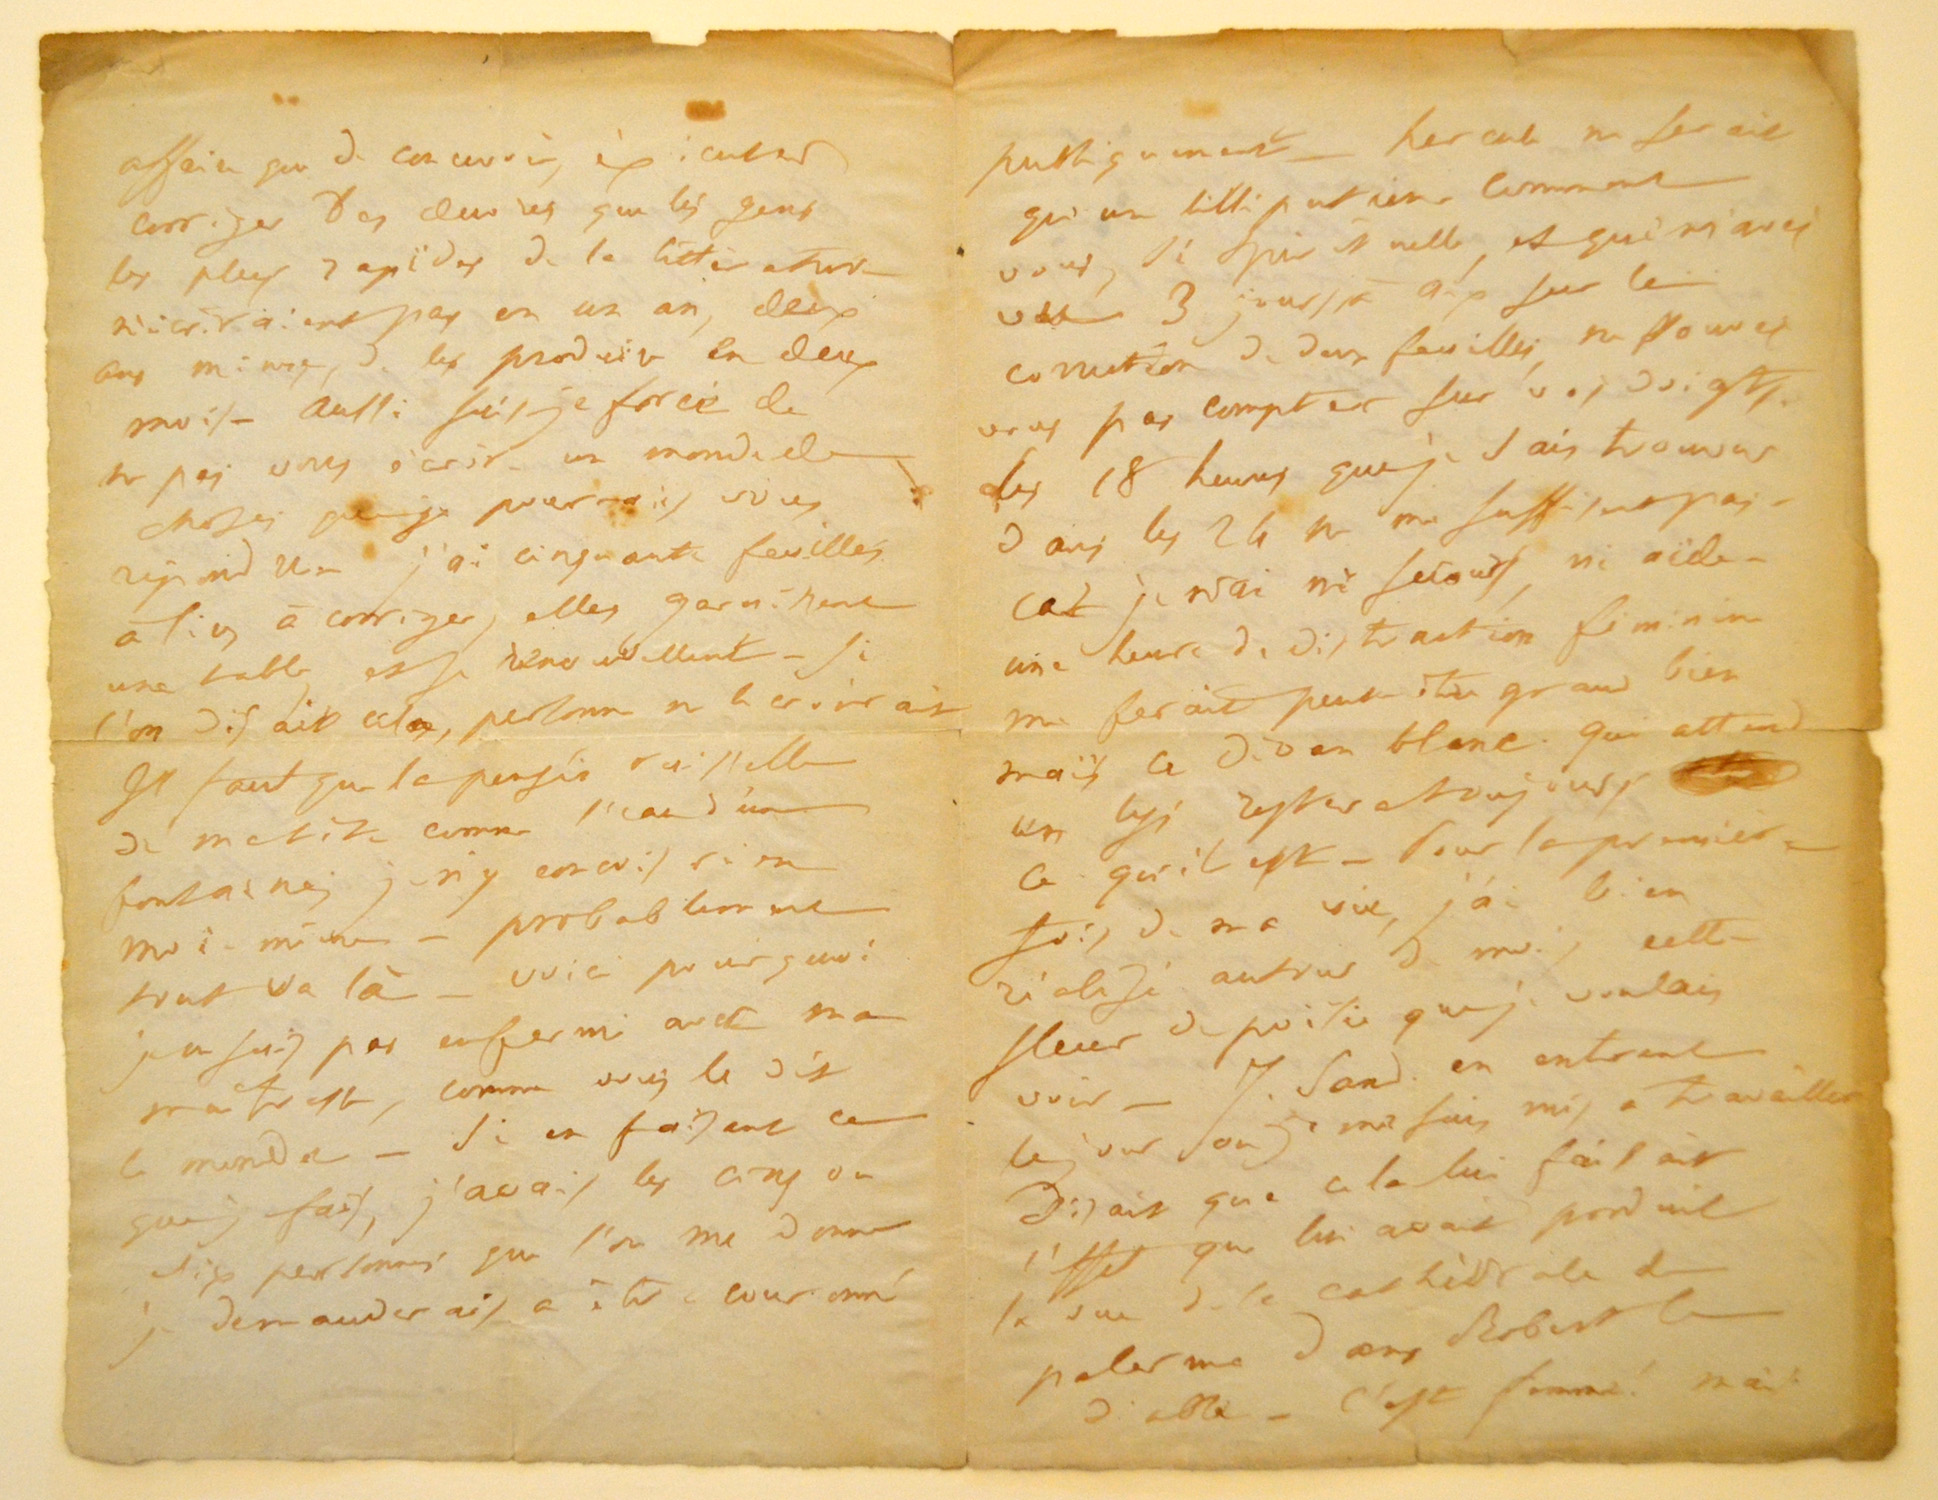 affaire que de concevoir, éxécuter
corriger des œuvres que les gens
les plus rapides de la littérature
n'écriraient pas en un an, deux
ans même, de les produire en deux
mois – aussi suis-je forcé de
ne pas vous écrire un monde de
choses que je pourrais vous
répondre j'ai cinquante feuilles
à lire à corriger, elles garnissent
une table, et se renouvellent – si
l'on disait cela, personne ne le croirait
Il faut que la pensée ruisselle
de ma tête comme l'eau d'une
fontaine, je n'y conçois rien
moi-même – probablement
tout va là – voici pourquoi
je ne suis pas enfermé avec ma
maîtresse, comme vous le dit
le monde – Si en faisant ce
que je fais, j'avais les cinq ou
six personnes que l'on me donne
je demanderais à être couronné
publiquement – hercule ne serait
qu'un lilliputien Comment
vous, si spirituelle, et qui m'avez
vu 3 jours à aix sur la
correction de deux feuilles, ne pouvez
vous pas compter sur vos doigts.
les 18 heures que je sais trouver
dans les 24 ne me suffisent pas –
car je n'ai ni secours, ni aide –
une heure de distraction féminine
me ferait peut-être grand bien
mais ce divan blanc qui attend
un lys restera toujours
ce qu'il est – Pour la première
fois de ma vie, j'ai bien
réalisé autour de moi, cette
fleur de poésie que je voulais
voir – J. Sand. en entrant
le jour où je me suis mis à travailler
disait que cela lui faisait
l'effet que lui avait produit
la vue de la cathédrale de
palerme dans Robert le
diable – c'est femme! mais